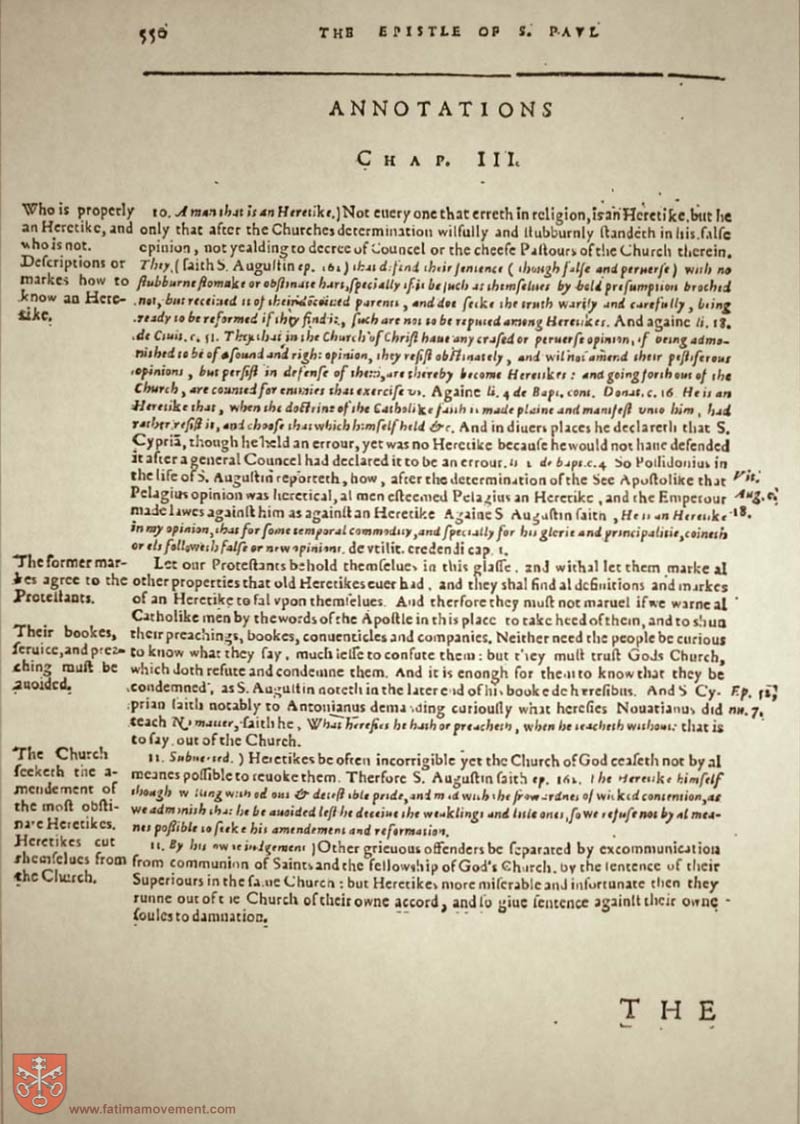 550 THE EPISTLE OF S. PAVL
ANNOTATIONS
CHAP. III.
Who is properly
an Heretike, and
who is not.
Descriptions or
markes how to
know an Here-
tike.
10. A man that is an Heretike.) Not euery one that erreth in religion, is an Heretike, but he
only that after the Churches determination wilfully and stubburnly standeth in his false
opinion, not yealding to decree of Councel or the cheefe Pastours of the Church therein.
They (saith S. Augustin ep. 162) that defend their sentence (though false and peruerse) with no
stubburne stomake or obstinate hart, specially if it be such as themselues by bold presumption broched
not, but receiued it of their deceiued parents, and doe seeke the truth warily and carefully, being
ready to be reformed if they find it, such are not to be reputed among Heretikes. And againe li. 18.
de Ciuit. c. 51. They that in the Church of Christ haue any crased or peruerse opinion, if being admo-
nished to be of a sound and right opinion, they resist obstinately, and wil not amend their pestiferous
opinions, but persist in defense of them, are thereby become Heretikes: and going forth out of the
Church, are counted for enimies that exercise vs. Againe li. 4 de Bapt. cont. Donat. c. 16 He is an
Heretike that, when the doctrine of the Catholike faith is made plaine and manifest vnto him, had
rather resist it, and choose that which himself held &c. And in diuers places he declareth that S.
Cypriā, though he held an errour, yet was no Heretike because he would not haue defended
it after a general Councel had declared it to be an errour. li 2 de bapt. c. 4 So Possidonius in
the life of S. Augustin reporteth, how, after the determination of the See Apostolike that
Pelagius opinion was heretical, al men esteemed Pelagius an Heretike, and the Emperour
made lawes against him as against an Heretike Againe S Augustin saith, He is an Heretike
in my opinion, that for some temporal commodity, and specially for his glorie and principalitie, coineth
or els followeth false or new opinions. de vtilit. credendi cap. 1.
Vit.
Aug. c.
18.
The former mar-
kes agree to the
Protestants.
Let our Protestants behold themselues in this glasse, and withal let them marke al
other properties that old Heretikes euer had, and they shal find al definitions and markes
of an Heretike to fal vpon themselues. And therfore they must not maruel if we warne al
Catholike men by the words of the Apostle in this place to take heed of them, and to shun
their preachings, bookes, conuenticles and companies. Neither need the people be curious
to know what they say, much lesse to confute them: but they must trust Gods Church,
which doth refute and condemne them. And it is enongh for them to know that they be
condemned, as S. Augustin noteth in the later end of his booke de hæresibus. And S Cy-
prian saith notably to Antonianus demanding curiously what heresies Nouatianus did
teach No mater, saith he, What heresies he hath or preacheth, when he teacheth without: that is
to say, out of the Church.
Their bookes,
seruice, and prea-
ching must be
auoided.
Ep. 52,
nu. 7.
The Church
seeketh the a-
mendement of
the most obsti-
nate Heretikes.
11. Subuerted.) Heretikes be often incorrigible yet the Church of God ceaseth not by al
meanes possible to reuoke them. Therfore S. Augustin saith ep. 162. The Heretike himself
though swelling with odious & detestible pride, and mad with the frowardnes of wicked contention, as
we admonish that he be auoided lest he deceiue the weaklings and litle ones, so we refuse not by al mea-
nes possible to seeke his amendement and reformation.
Heretikes cut
themselues from
the Church.
11. By his owne iudgement) Other grieuous offenders be separated by excommunication
from communion of Saints and the fellowship of God's Church, by the sentence of their
Superiours in the same Church: but Heretikes more miserable and infortunate then they
runne out of the Church of their owne accord, and so giue sentence against their owne
soules to damnation.
THE
www.fatimamovement.com